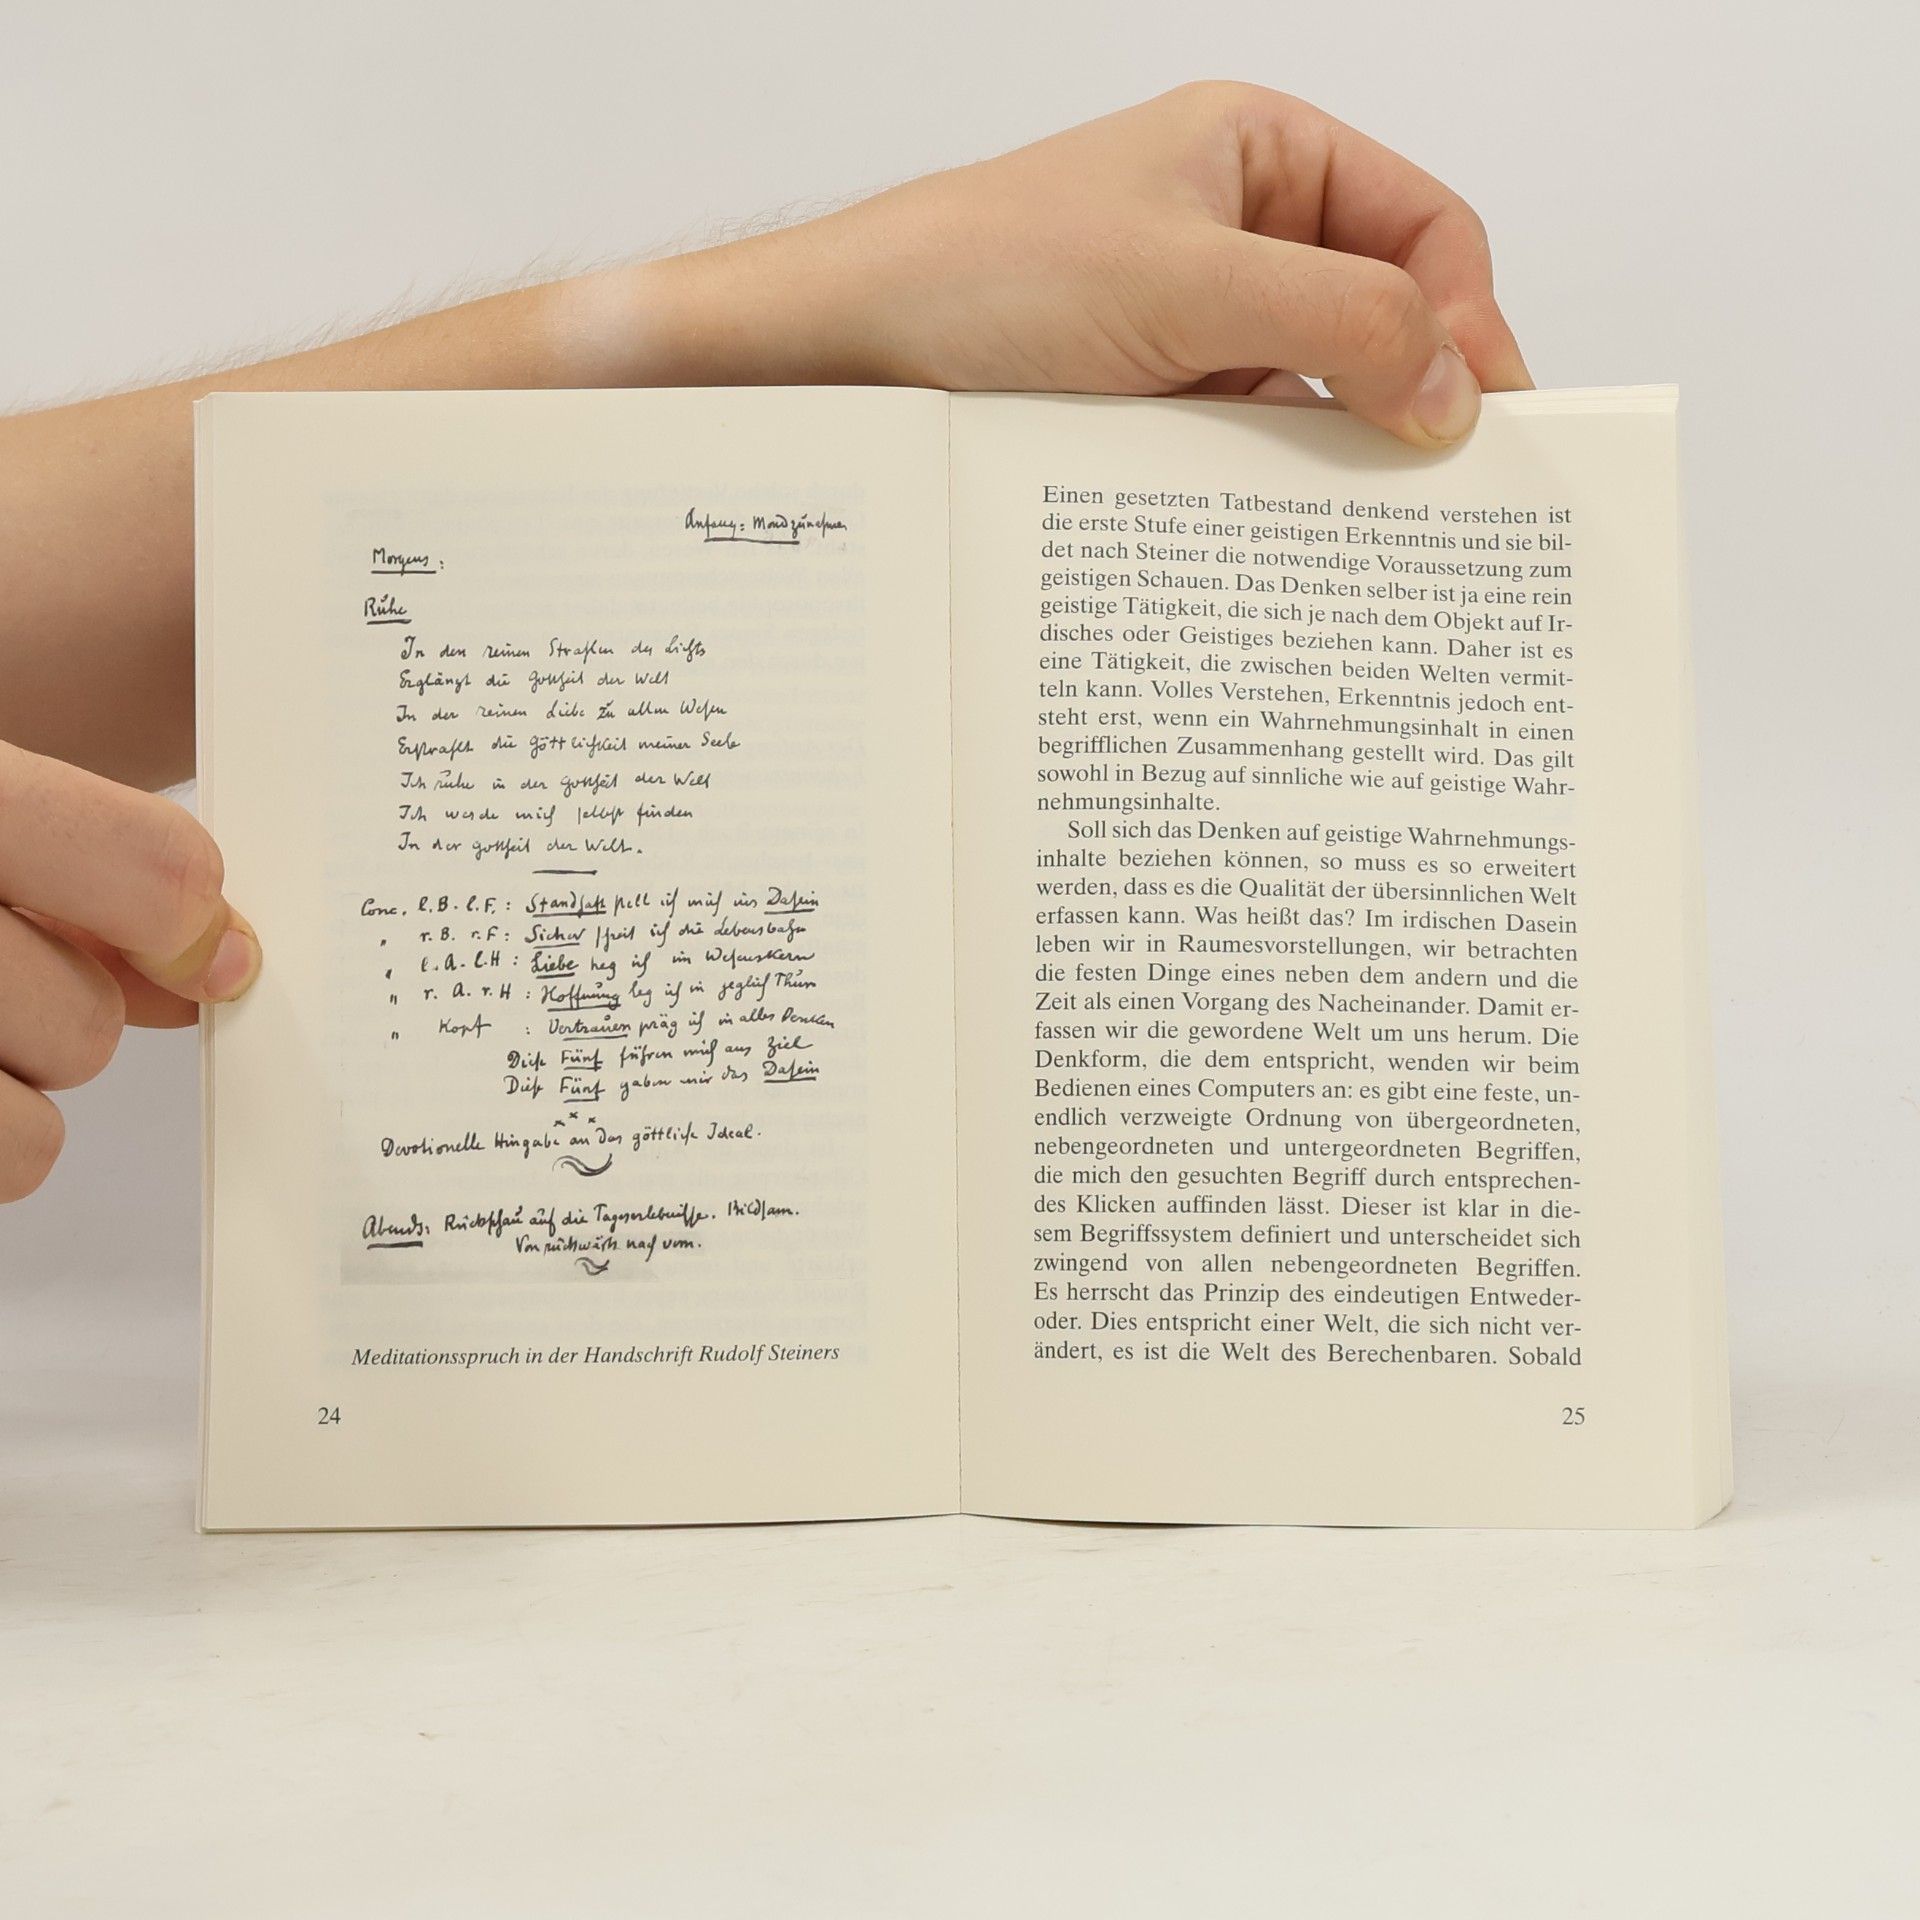 Anfang: Mondzunahme
Morgens:
Ruhe
In den reinen Strahlen des Lichts
Erglänzt die Gottheit der Welt
In der reinen Liebe zu allen Wesen
Erstrahlt die Göttlichkeit meiner Seele
Ich ruhe in der Gottheit der Welt
Ich werde mich selbst finden
In der Gottheit der Welt.
Conc. l.B. l.F.: Standhaft stell ich mich ins Dasein
„ r. B. r. F: Sicher schreit ich die Lebensbahn
„ l. A. l. H: Liebe heg ich im Wesenskern
„ r. A. r. H: Hoffnung leg ich in jeglich Thun
„ Kopf : Vertrauen präg ich in alles Denken
Diese Fünf führen mich ans Ziel
Diese Fünf gaben mir das Dasein
Devotionelle Hingabe an das göttliche Ideal.
Abends: Rückschau auf die Tageserlebnisse. Bildsam.
Von rückwärts nach vorn.
Meditationsspruch in der Handschrift Rudolf Steiners
24
Einen gesetzten Tatbestand denkend verstehen ist
die erste Stufe einer geistigen Erkenntnis und sie bil-
det nach Steiner die notwendige Voraussetzung zum
geistigen Schauen. Das Denken selber ist ja eine rein
geistige Tätigkeit, die sich je nach dem Objekt auf Ir-
disches oder Geistiges beziehen kann. Daher ist es
eine Tätigkeit, die zwischen beiden Welten vermit-
teln kann. Volles Verstehen, Erkenntnis jedoch ent-
steht erst, wenn ein Wahrnehmungsinhalt in einen
begrifflichen Zusammenhang gestellt wird. Das gilt
sowohl in Bezug auf sinnliche wie auf geistige Wahr-
nehmungsinhalte.
Soll sich das Denken auf geistige Wahrnehmungs-
inhalte beziehen können, so muss es so erweitert
werden, dass es die Qualität der übersinnlichen Welt
erfassen kann. Was heißt das? Im irdischen Dasein
leben wir in Raumesvorstellungen, wir betrachten
die festen Dinge eines neben dem andern und die
Zeit als einen Vorgang des Nacheinander. Damit er-
fassen wir die gewordene Welt um uns herum. Die
Denkform, die dem entspricht, wenden wir beim
Bedienen eines Computers an: es gibt eine feste, un-
endlich verzweigte Ordnung von übergeordneten,
nebengeordneten und untergeordneten Begriffen,
die mich den gesuchten Begriff durch entsprechen-
des Klicken auffinden lässt. Dieser ist klar in die-
sem Begriffssystem definiert und unterscheidet sich
zwingend von allen nebengeordneten Begriffen.
Es herrscht das Prinzip des eindeutigen Entweder-
oder. Dies entspricht einer Welt, die sich nicht ver-
ändert, es ist die Welt des Berechenbaren. Sobald
25